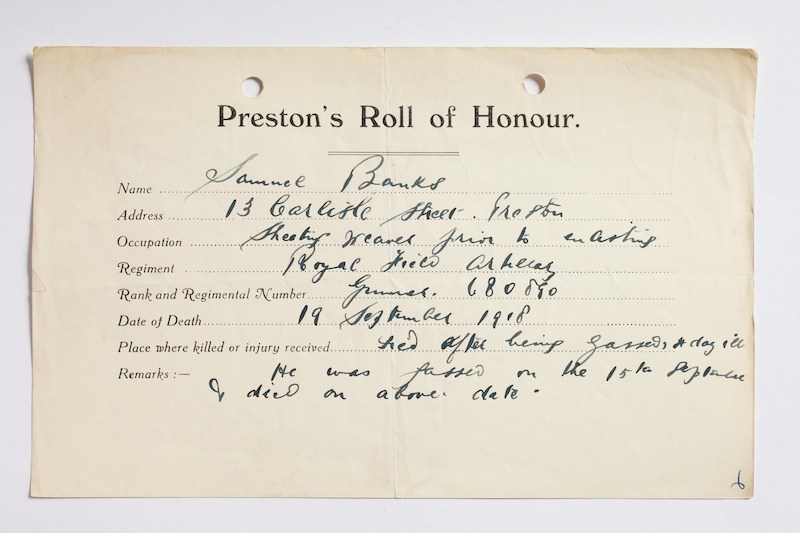 Preston's Roll of Honour.
Name Samuel Banks
Address 13 Carlisle Street. Preston
Occupation Sheeting Weaver prior to enlisting
Regiment Royal Field Artillery
Rank and Regimental Number Gunner.
Date of Death 19 September 1918
Place where killed or injury received died after being gassed, 4 day ill
Remarks :— He was gassed on the 15th September
& died on above date.
6